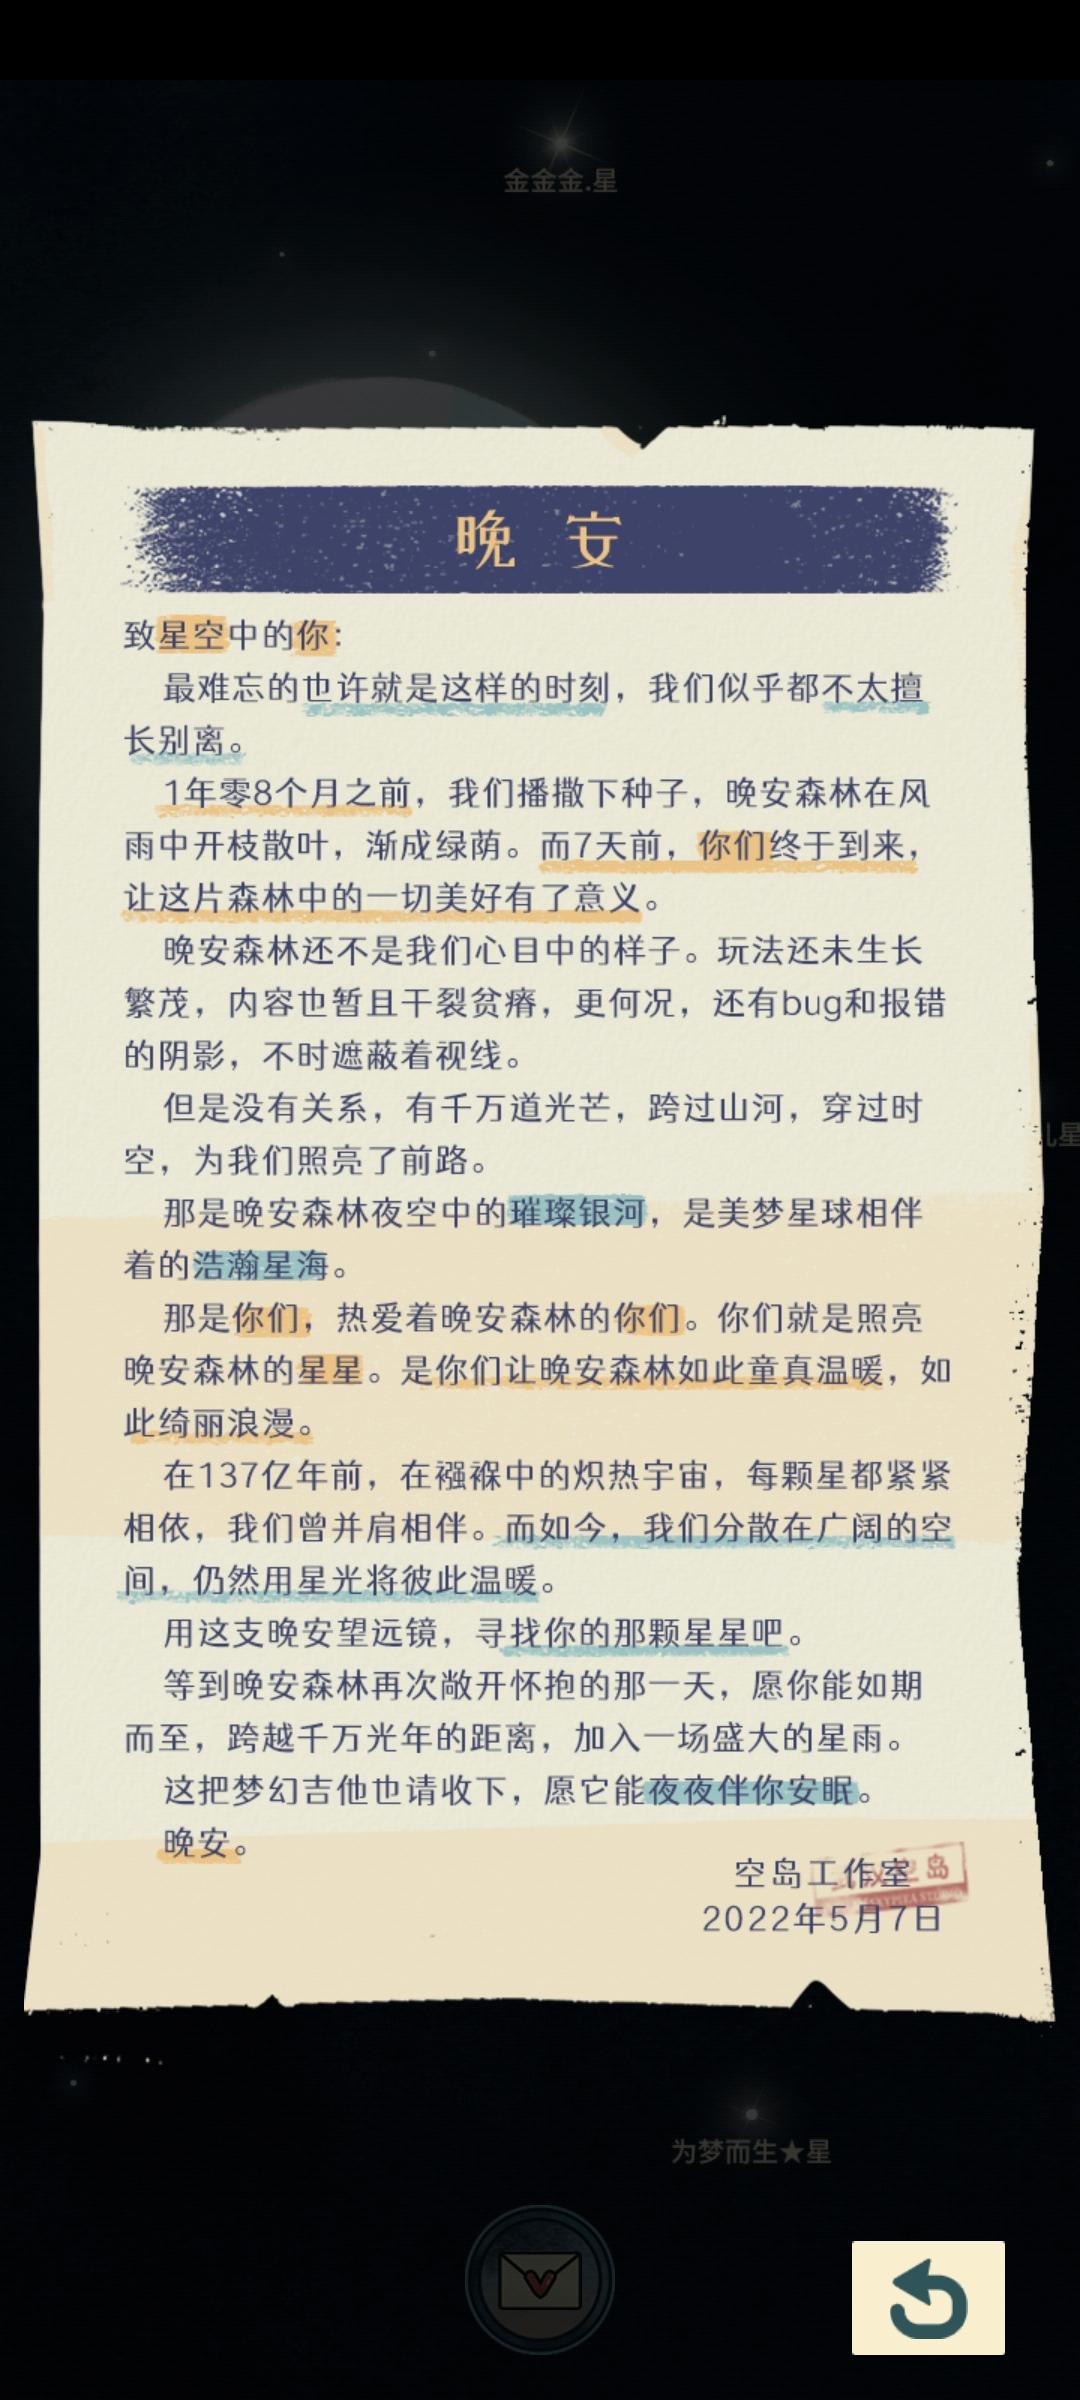 金金金.星
晚 安
致星空中的你：
最难忘的也许就是这样的时刻，我们似乎都不太擅
长别离。
1年零8个月之前，我们播撒下种子，晚安森林在风
雨中开枝散叶，渐成绿荫。而7天前，你们终于到来，
让这片森林中的一切美好有了意义。
晚安森林还不是我们心目中的样子。玩法还未生长
繁茂，内容也暂且干裂贫瘠，更何况，还有bug和报错
的阴影，不时遮蔽着视线。
但是没有关系，有千万道光芒，跨过山河，穿过时
空，为我们照亮了前路。
那是晚安森林夜空中的璀璨银河，是美梦星球相伴
着的浩瀚星海。
那是你们，热爱着晚安森林的你们。你们就是照亮
晚安森林的星星。是你们让晚安森林如此童真温暖，如
此绮丽浪漫。
在137亿年前，在襁褓中的炽热宇宙，每颗星都紧紧
相依，我们曾并肩相伴。而如今，我们分散在广阔的空
间，仍然用星光将彼此温暖。
用这支晚安望远镜，寻找你的那颗星星吧。
等到晚安森林再次敞开怀抱的那一天，愿你能如期
而至，跨越千万光年的距离，加入一场盛大的星雨。
这把梦幻吉他也请收下，愿它能夜夜伴你安眠。
晚安。
空岛工作室
2022年5月7日
为梦而生★星